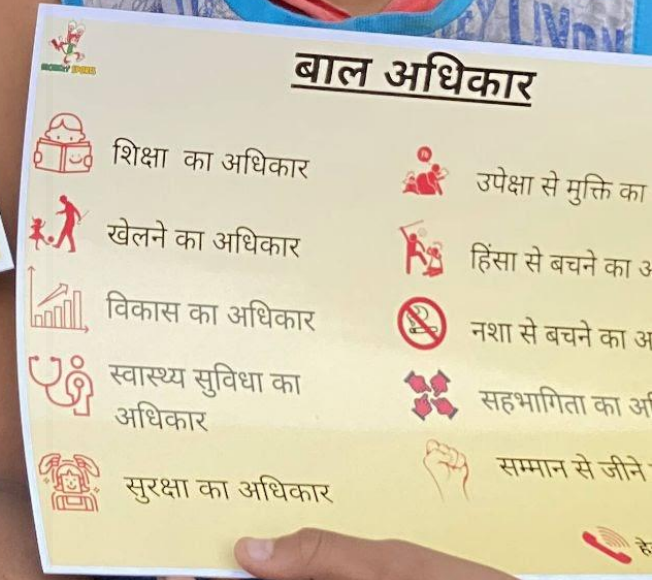 बाल अधिकार
शिक्षा का अधिकार
खेलने का अधिकार
विकास का अधिकार
स्वास्थ्य सुविधा का
अधिकार
सुरक्षा का अधिकार
उपेक्षा से मुक्ति का
हिंसा से बचने का
नशा से बचने का
सहभागिता का
सम्मान से जीने